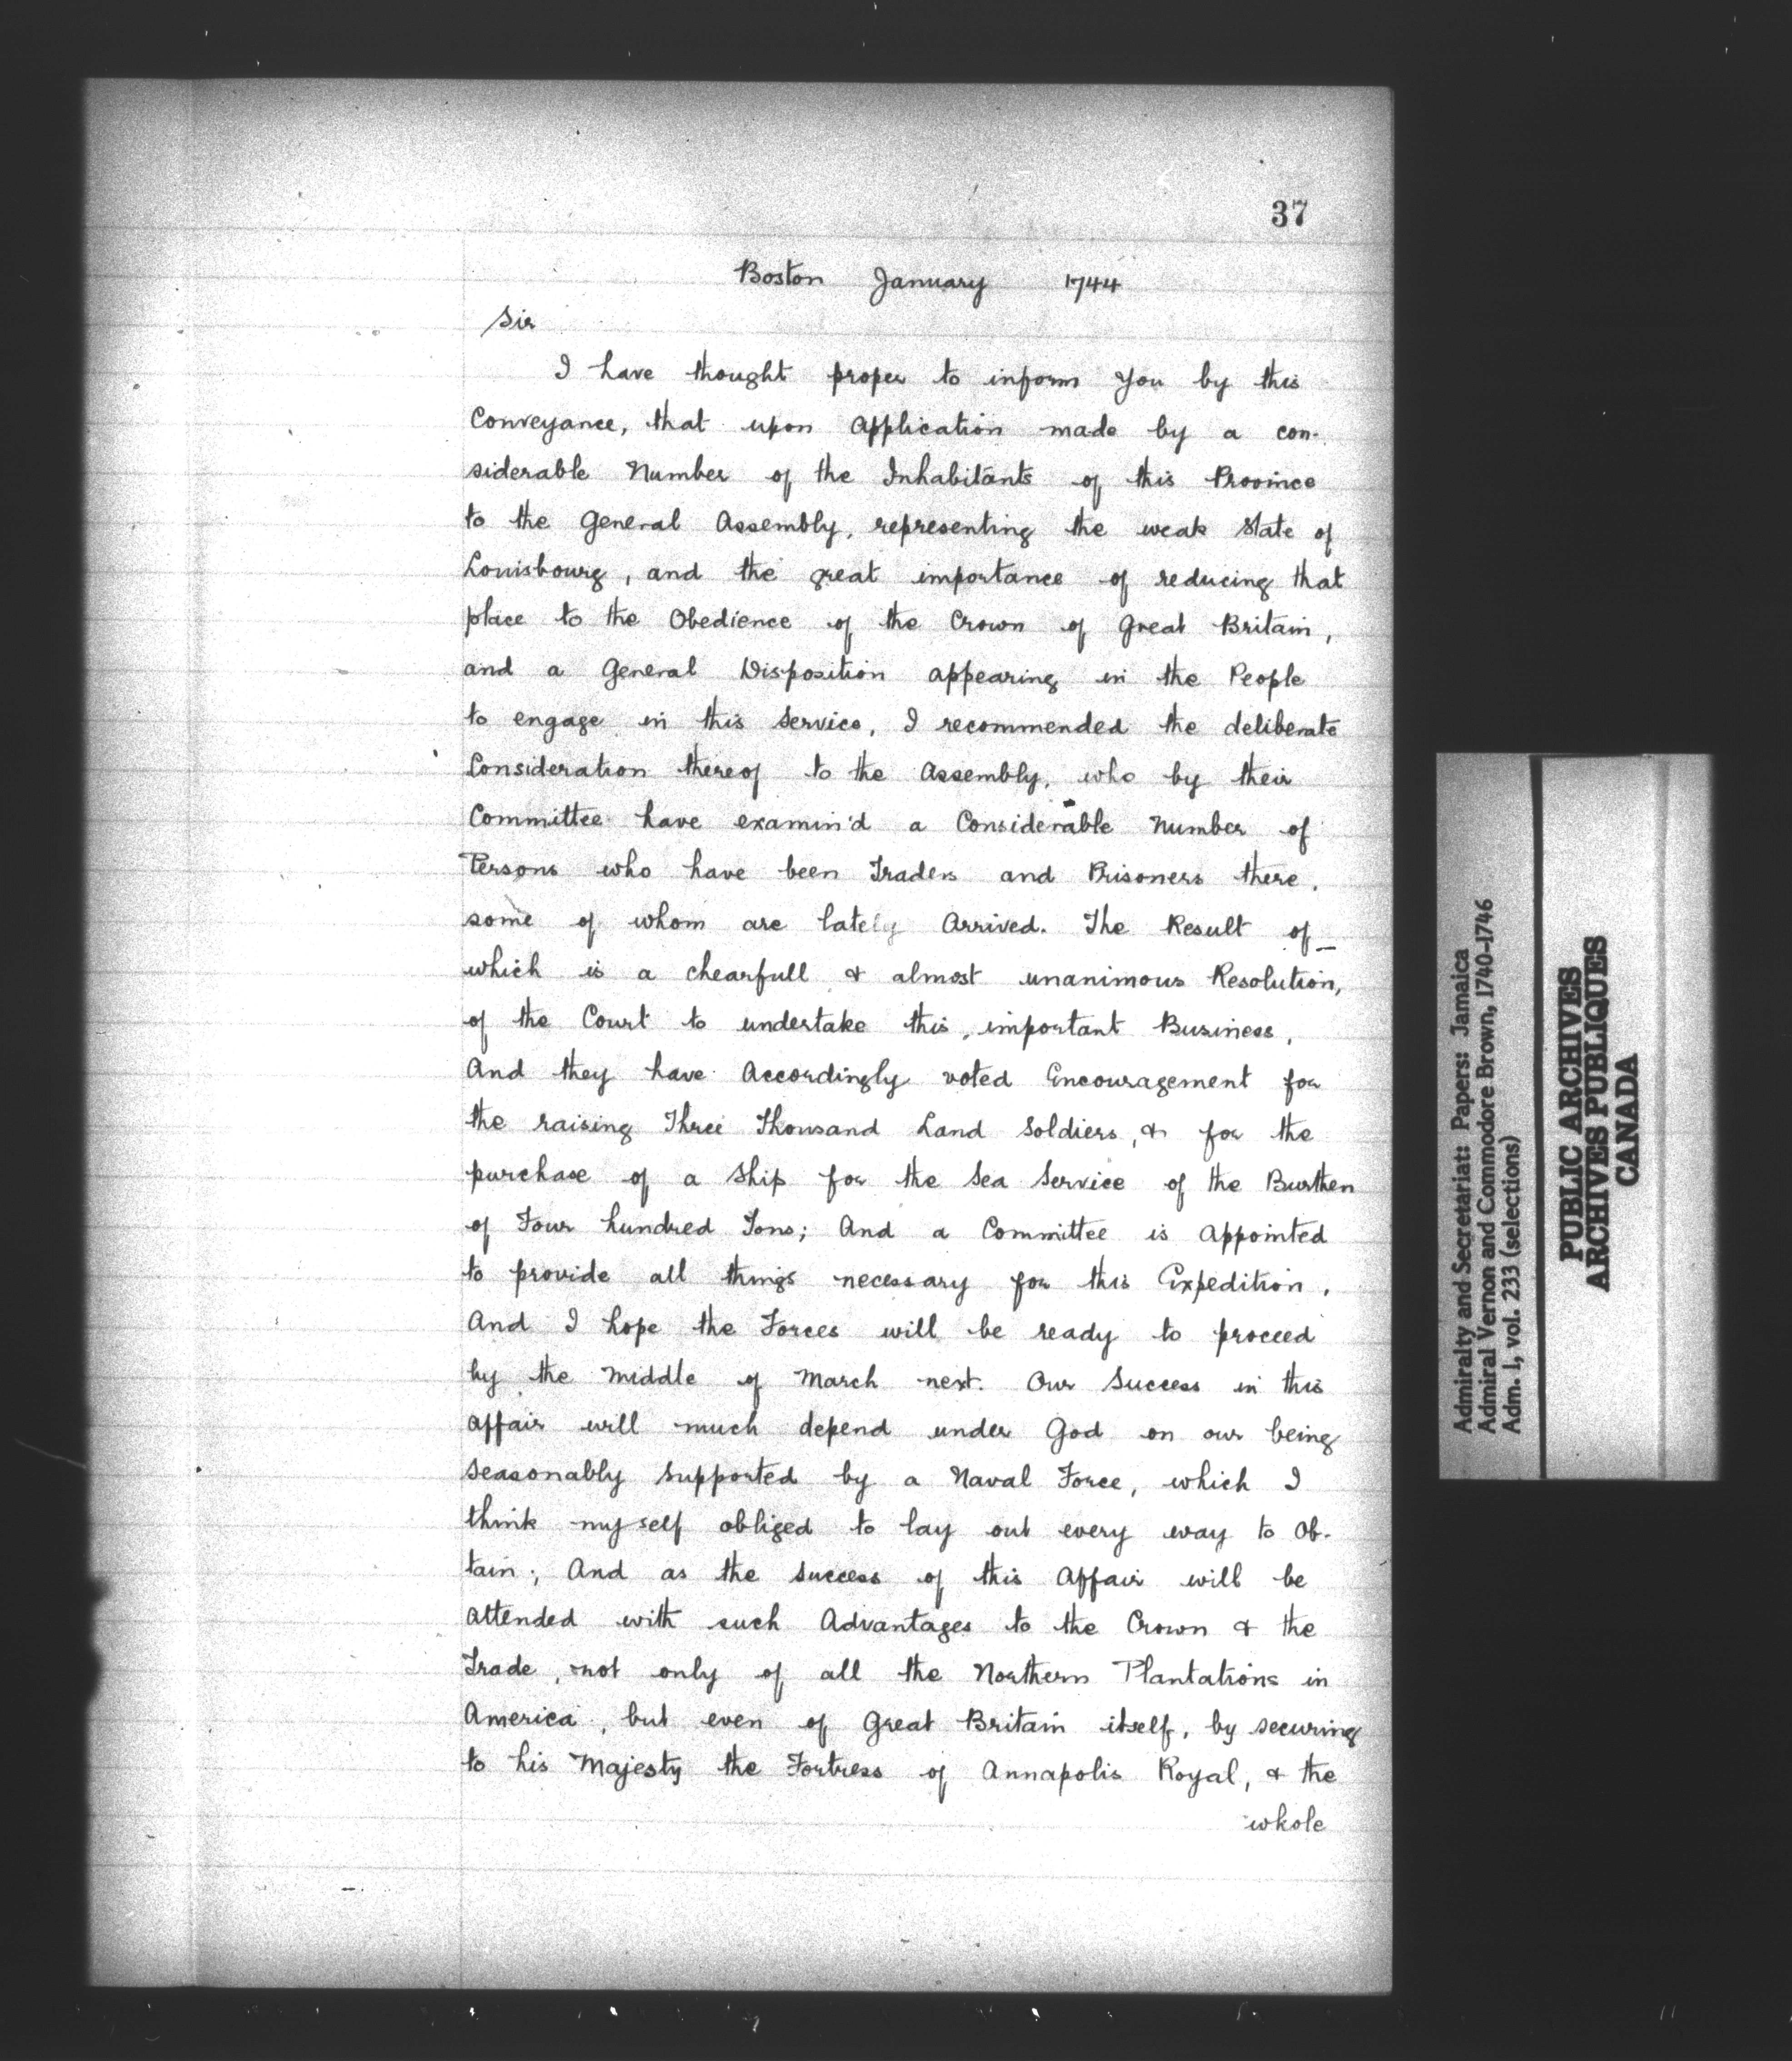 37
Boston January 1744
Sir
I have thought proper to inform You by this
Conveyance, that upon Application made by a con-
siderable Number of the Inhabitants of this Province
to the General Assembly, representing the weak State of
Louisbourg, and the great importance of reducing that
place to the Obedience of the Crown of Great Britain,
and a General Disposition appearing in the People
to engage in this Service, I recommended the deliberate
Consideration thereof to the Assembly, who by their
Committee have examin'd a Considerable Number of
Persons who have been Traders and Prisoners there,
some of whom are lately Arrived. The Result of
which is a chearfull & almost unanimous Resolution,
of the Court to undertake this important Business,
And they have Accordingly voted Encouragement for
the raising Three Thousand Land Soldiers, & for the
purchase of a Ship for the Sea Service of the Burthen
of Four hundred Tons; And a Committee is Appointed
to provide all things necessary for this Expedition,
And I hope the Forces will be ready to proceed
by the Middle of March next. Our Success in this
Affair will much depend under God on our being
Seasonably Supported by a Naval Force, which I
think myself obliged to lay out every way to Ob-
tain; And as the Success of this Affair will be
Attended with such Advantages to the Crown & the
Trade, not only of all the Northern Plantations in
America, but even of Great Britain itself, by securing
to his Majesty the Fortress of Annapolis Royal, & the
whole
Admiralty and Secretariat: Papers: Jamaica
Admiral Vernon and Commodore Brown, 1740-1746
Adm. 1, vol. 233 (selections)
PUBLIC ARCHIVES
ARCHIVES PUBLIQUES
CANADA